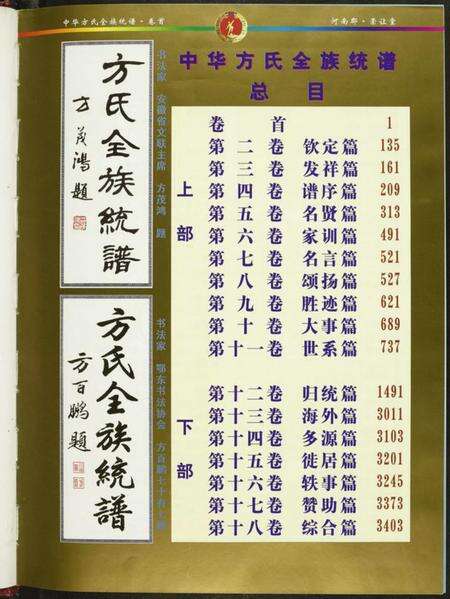 中华方氏全族统谱·卷首
河南郡·圣让堂
中华方氏全族统谱
总目
上部
卷首 1
第二卷 钦定篇 135
第三卷 发祥篇 161
第四卷 谱序篇 209
第五卷 名贤篇 313
第六卷 家训篇 491
第七卷 名言篇 521
第八卷 颂扬篇 527
第九卷 胜迹篇 621
第十卷 大事篇 689
第十一卷 世系篇 737
下部
第十二卷 归统篇 1491
第十三卷 海外篇 3011
第十四卷 多源篇 3103
第十五卷 徙居篇 3201
第十六卷 轶事篇 3245
第十七卷 赞助篇 3373
第十八卷 综合篇 3403
书法家 安徽省文联主席 方茂鸿 题
方氏全族統譜
方茂鴻題
书法家 鄂东书法协会 方百鹏七十有
方氏全族統譜
方百鵬題